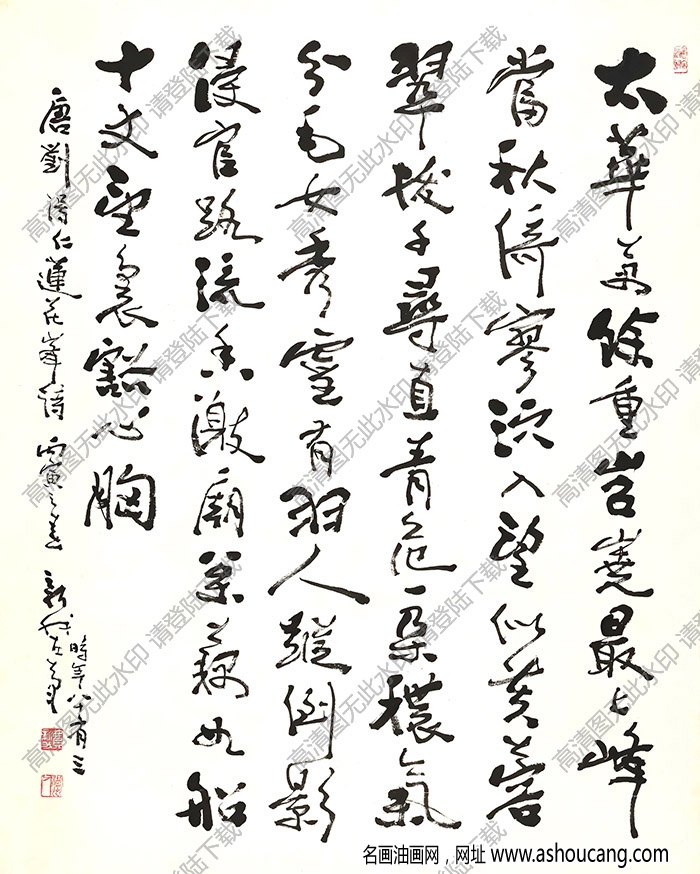 太華万餘重岧嶤最上峰
當秋倚寥泬入望似芙蓉
翠拔千尋直青危一朵穠氣
分毛女秀靈有羽人蹤倒影
侵官路流香激廟藕如船
十丈望豁心胸
唐劉得仁蓮花峰詩 丙寅之春 新我左筆
時年八十有三
高清图无此水印 请登陆下载
名画油画网，网址 www.ashoucang.com